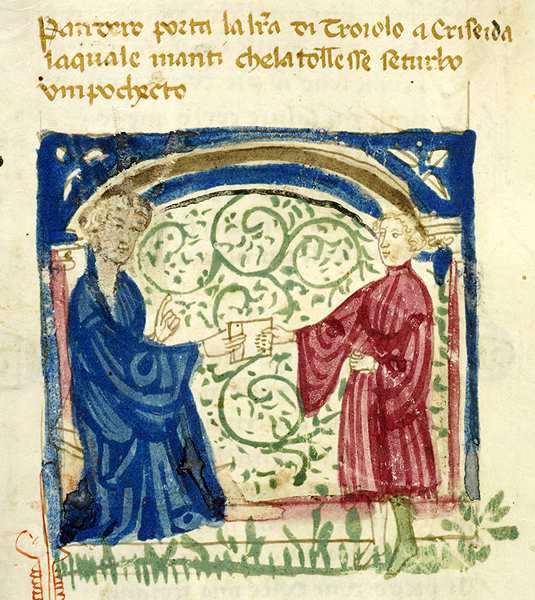 Pandero porta la lr̃a di Troiolo a Criseida
laquale inanti chelatollesse seturbo
unpochecto